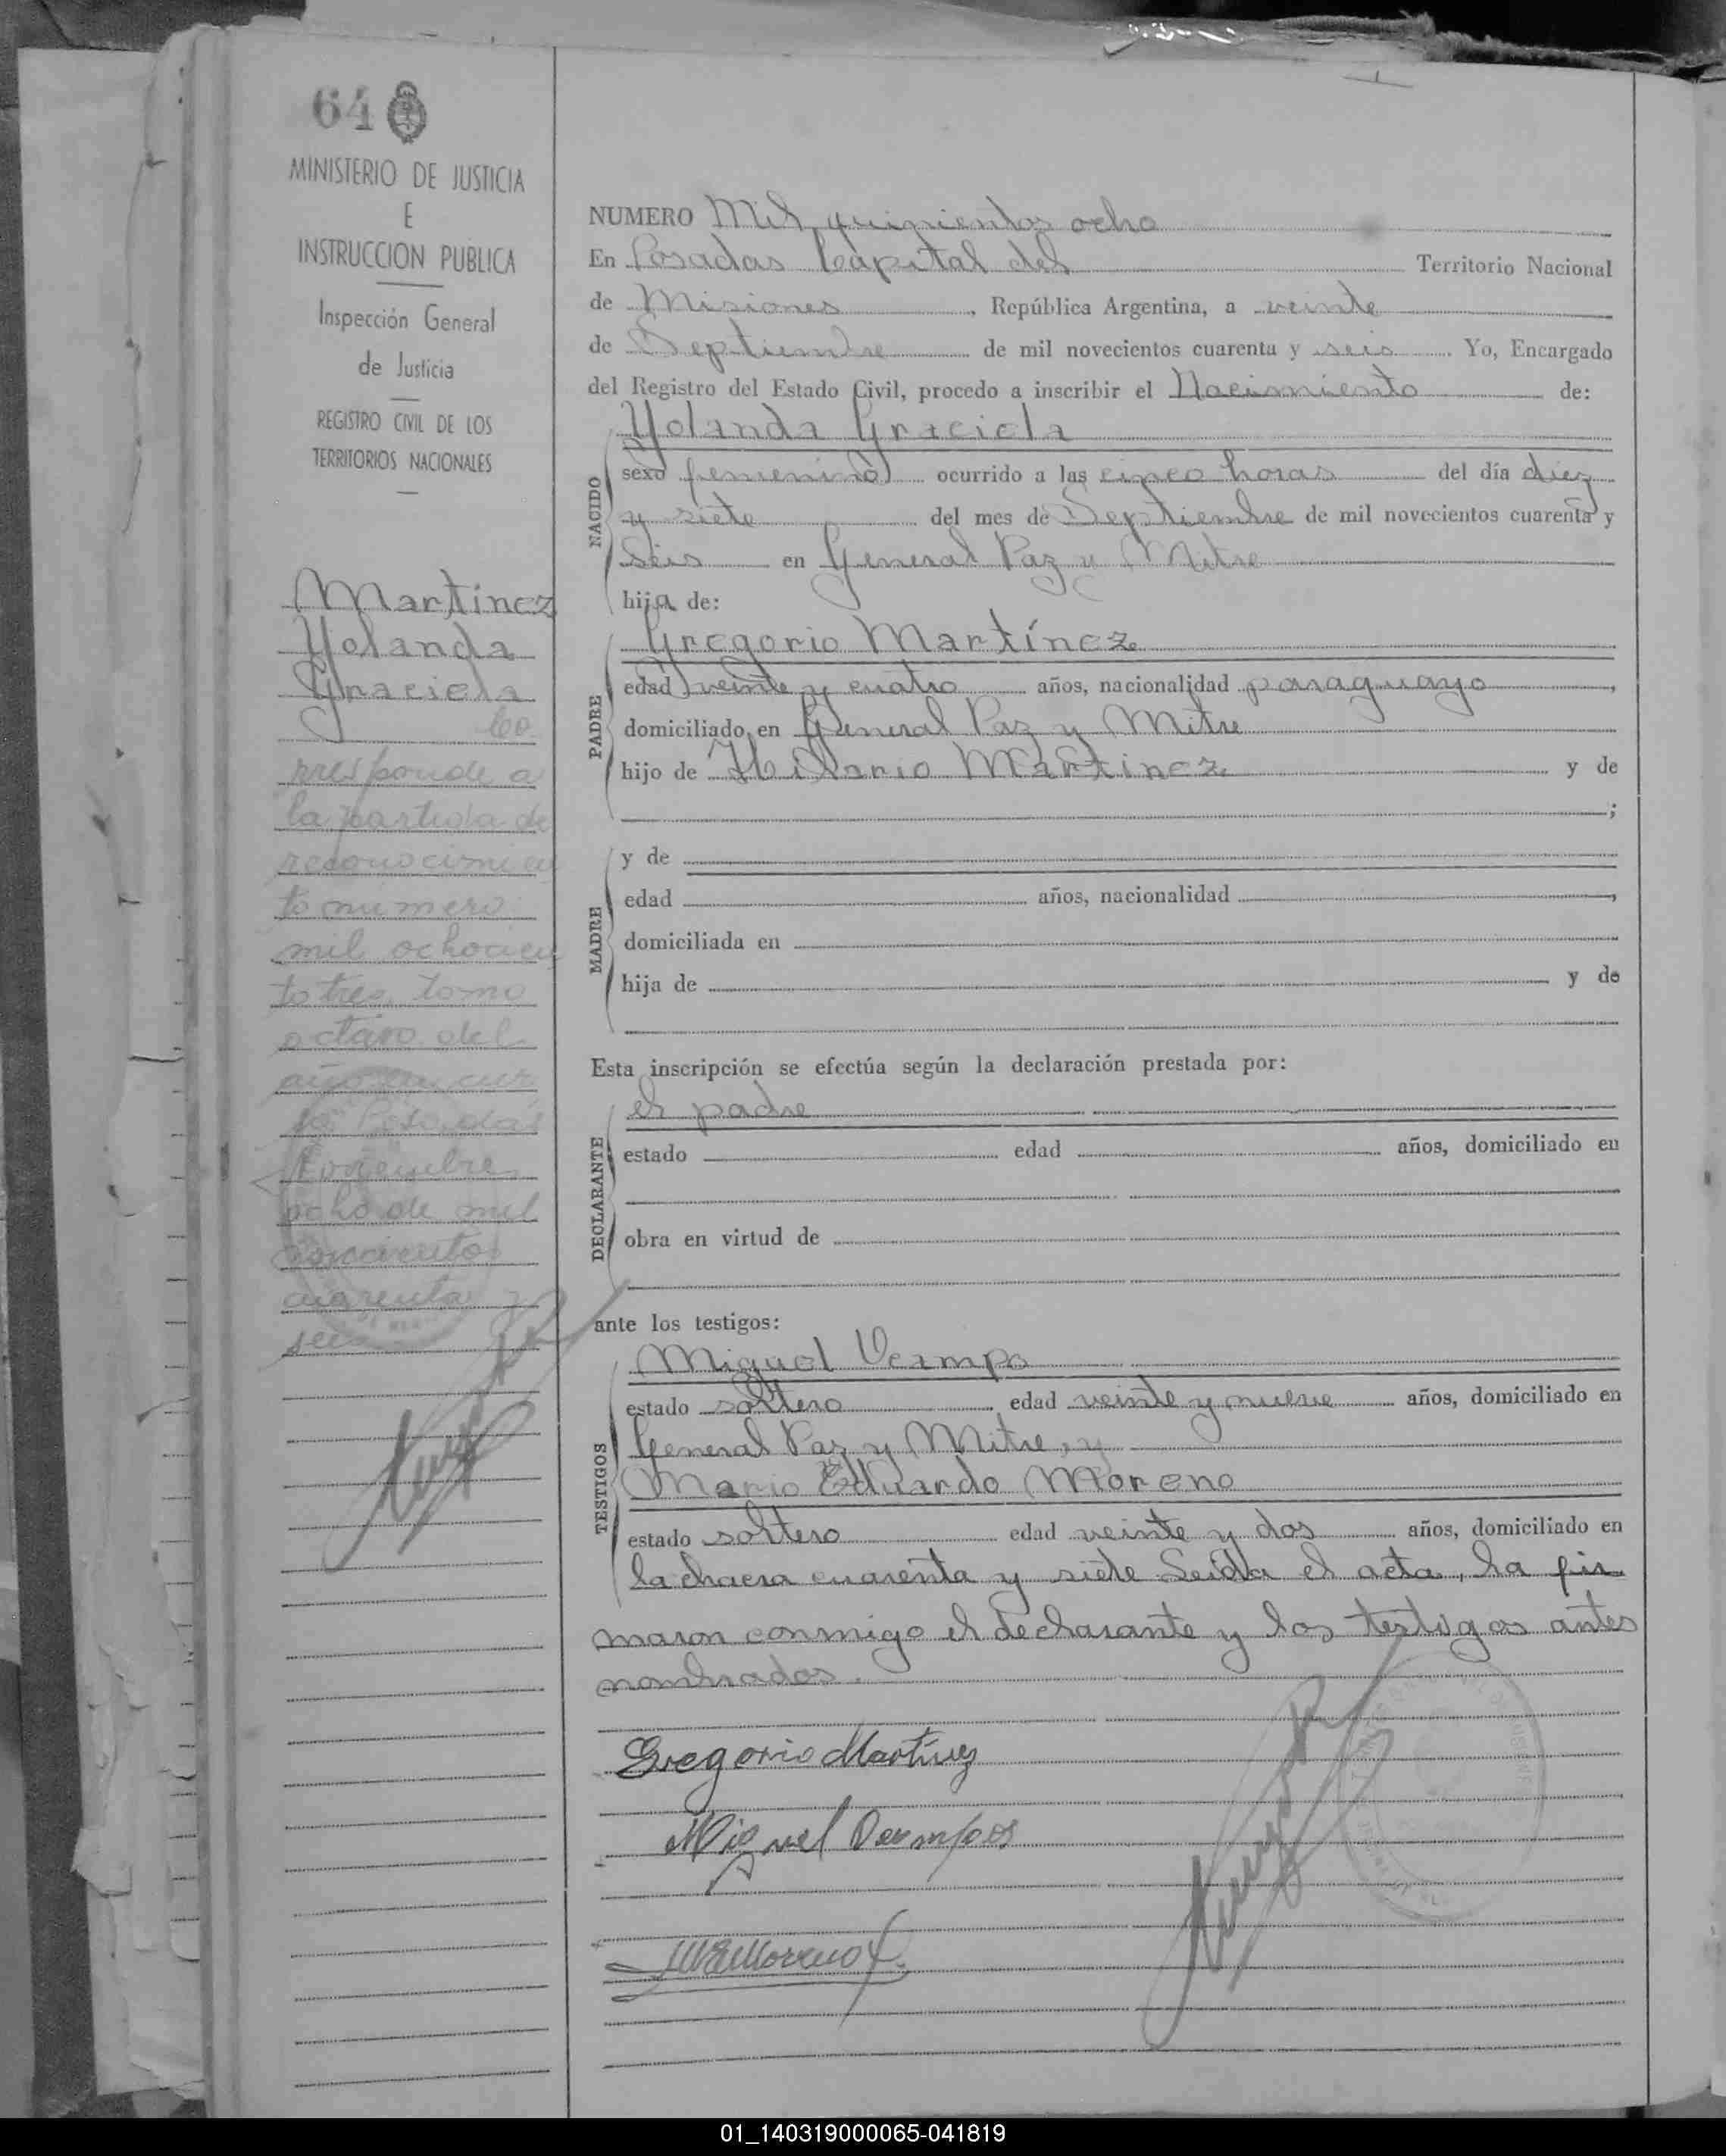 64
MINISTERIO DE JUSTICIA
E
INSTRUCCION PUBLICA
Inspección General
de Justicia
REGISTRO CIVIL DE LOS
TERRITORIOS NACIONALES
Martinez
Yolanda
Graciela
Co
rresponde a
la partida de
reconocimien
to numero
mil ochocien
to tres, tomo
octavo del
año en cur
so Posadas
Noviembre
ocho de mil
novecientos
cuarenta y
seis
NUMERO Mil quinientos ocho
En Posadas Capital del Territorio Nacional
de Misiones, República Argentina, a veinte
de Septiembre de mil novecientos cuarenta y seis. Yo, Encargado
del Registro del Estado Civil, procedo a inscribir el Nacimiento de:
Yolanda Graciela
NACIDO
sexo femenino ocurrido a las cinco horas del día diez
y siete del mes de Septiembre de mil novecientos cuarenta y
Seis en General Paz y Mitre
hija de:
Gregorio Martínez
PADRE
edad veinte y cuatro años, nacionalidad paraguayo,
domiciliado en General Paz y Mitre
hijo de Hilario Martinez y de
;
MADRE
y de
edad años, nacionalidad ,
domiciliada en
hija de y de
Esta inscripción se efectúa según la declaración prestada por:
el padre
DECLARANTE
estado edad años, domiciliado en
obra en virtud de
ante los testigos:
Miguel Ocampo
TESTIGOS
estado soltero edad veinte y nueve años, domiciliado en
General Paz y Mitre, y
Mario Eduardo Moreno
estado soltero edad veinte y dos años, domiciliado en
la chacra cuarenta y siete Leída el acta, la fir
maron conmigo el declarante y los testigos antes
nombrados.
Gregorio Martínez
Miguel Ocampos
MEMoreno
01_140319000065-041819